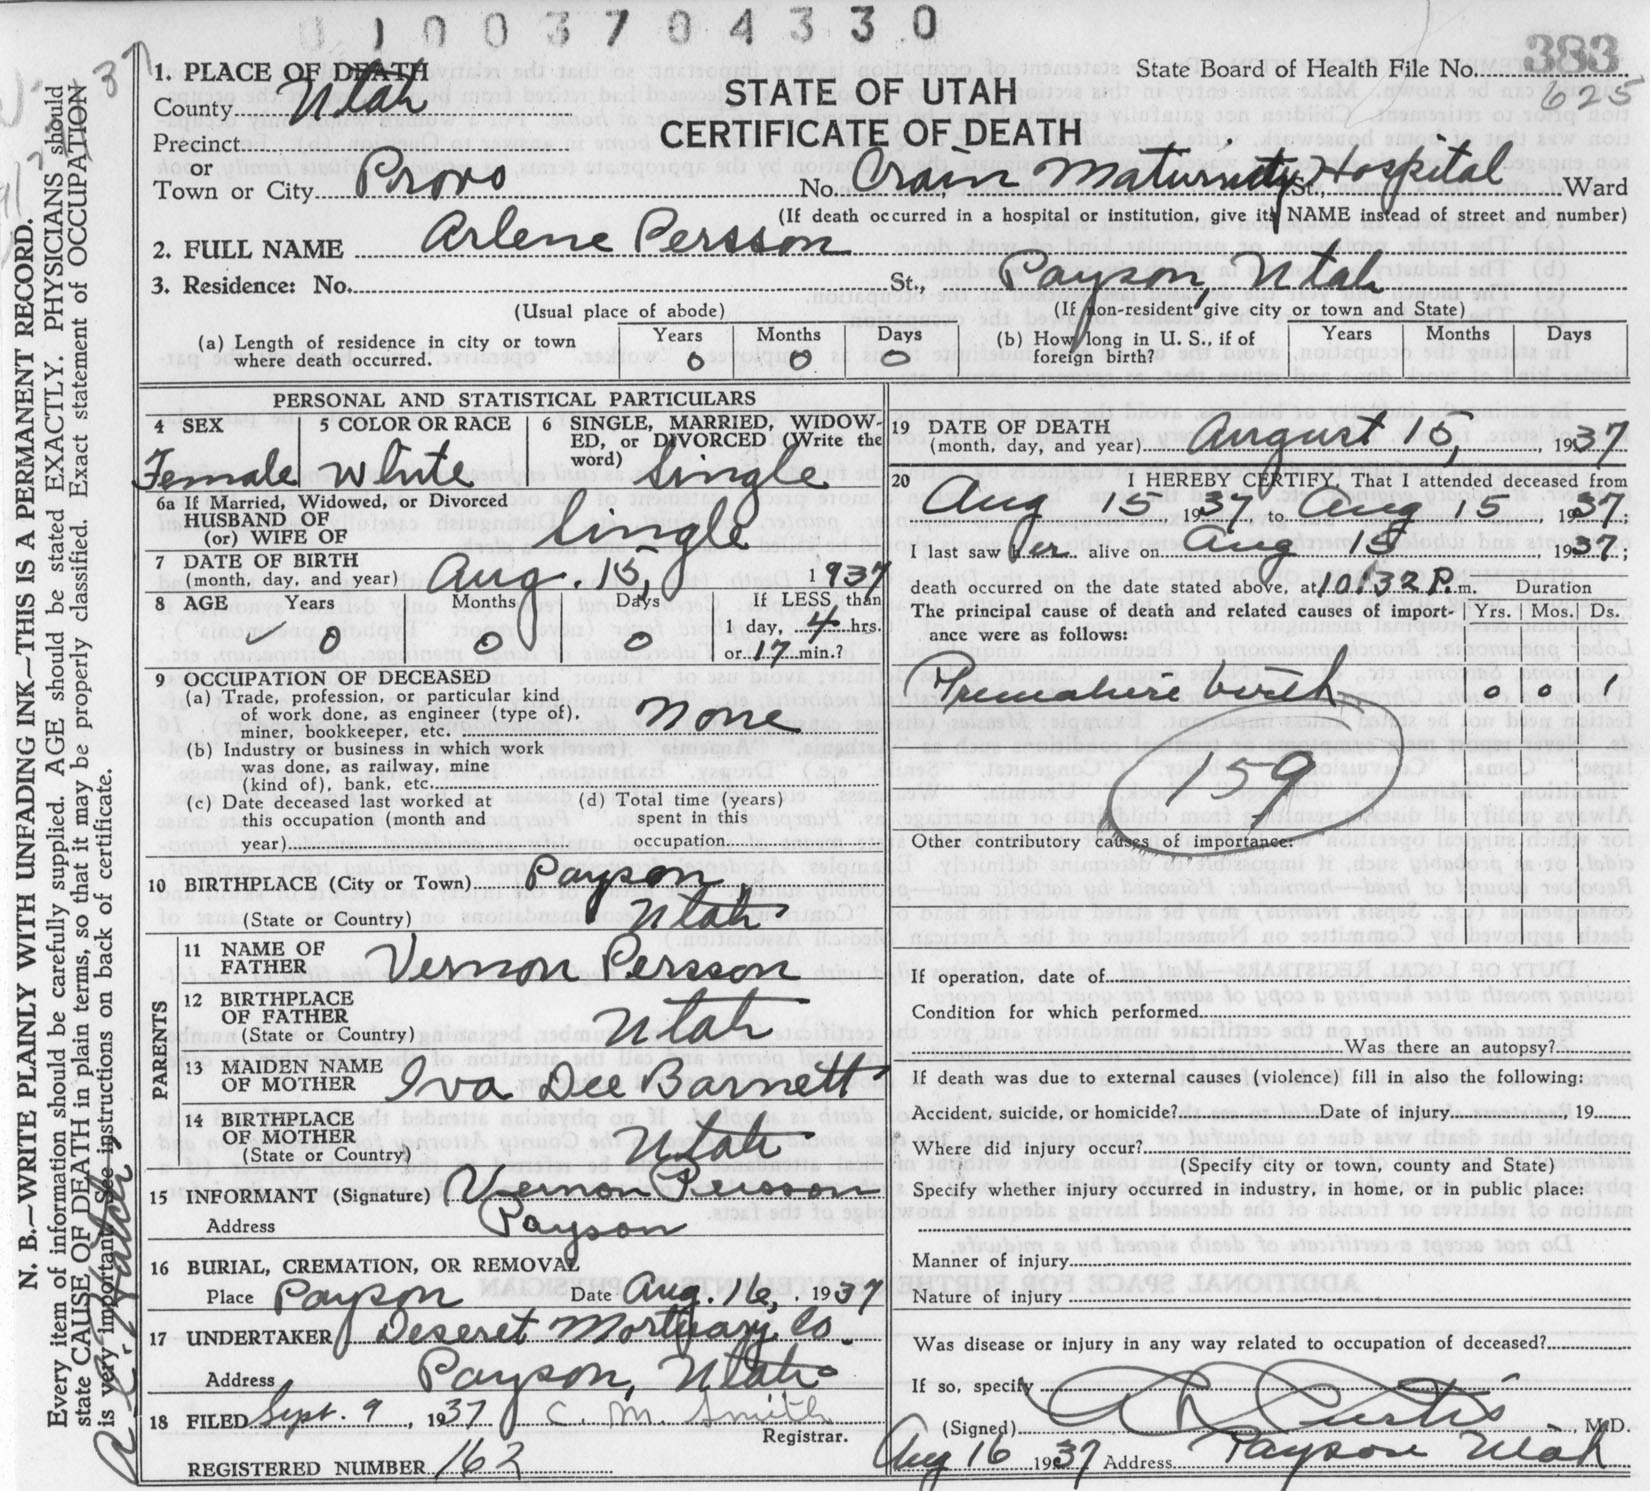 0 1 0 0 3 7 0 4 3 3 0
383
State Board of Health File No.
625
37
1. PLACE OF DEATH
County Utah
STATE OF UTAH
CERTIFICATE OF DEATH
Precinct
or
Town or City Provo No. Crain Maturnity St., Hospital Ward
(If death occurred in a hospital or institution, give its NAME instead of street and number)
2. FULL NAME Arlene Persson
3. Residence: No. St., Payson, Utah
(Usual place of abode) (If non-resident give city or town and State)
(a) Length of residence in city or town where death occurred. Years 0 Months 0 Days 0
(b) How long in U. S., if of foreign birth? Years Months Days
PERSONAL AND STATISTICAL PARTICULARS
4 SEX Female
5 COLOR OR RACE White
6 SINGLE, MARRIED, WIDOWED, or DIVORCED (Write the word) Single
6a If Married, Widowed, or Divorced
HUSBAND OF
(or) WIFE OF Single
7 DATE OF BIRTH
(month, day, and year) Aug. 15, 1937
8 AGE Years Months Days If LESS than
0 0 0 1 day, 4 hrs.
or 17 min.?
9 OCCUPATION OF DECEASED
(a) Trade, profession, or particular kind
of work done, as engineer (type of),
miner, bookkeeper, etc. None
(b) Industry or business in which work
was done, as railway, mine
(kind of), bank, etc.
(c) Date deceased last worked at
this occupation (month and
year)
(d) Total time (years)
spent in this
occupation.
10 BIRTHPLACE (City or Town) Payson
(State or Country) Utah
PARENTS
11 NAME OF
FATHER Vernon Persson
12 BIRTHPLACE
OF FATHER
(State or Country) Utah
13 MAIDEN NAME
OF MOTHER Iva Dee Barnett
14 BIRTHPLACE
OF MOTHER
(State or Country) Utah
15 INFORMANT (Signature) Vernon Persson
Address Payson
16 BURIAL, CREMATION, OR REMOVAL
Place Payson Date Aug. 16, 1937
17 UNDERTAKER Deseret Mortuary Co.
Address Payson, Utah
18 FILED Sept. 9, 1937 C. M. Smith
Registrar.
REGISTERED NUMBER 162
19 DATE OF DEATH
(month, day, and year) August 15, 1937
20 I HEREBY CERTIFY, That I attended deceased from
Aug 15 1937 to Aug 15, 1937
I last saw her alive on Aug 15 1937;
death occurred on the date stated above, at 10:32 P. m. Duration
The principal cause of death and related causes of importance were as follows: Yrs. Mos. Ds.
Premature birth 0 0 1
159
Other contributory causes of importance:
If operation, date of
Condition for which performed
Was there an autopsy?
If death was due to external causes (violence) fill in also the following:
Accident, suicide, or homicide? Date of injury , 19
Where did injury occur?
(Specify city or town, county and State)
Specify whether injury occurred in industry, in home, or in public place:
Manner of injury
Nature of injury
Was disease or injury in any way related to occupation of deceased?
If so, specify
(Signed) A L Curtis, M.D.
Aug 16 1937 Address Payson Utah
N. B.—WRITE PLAINLY WITH UNFADING INK—THIS IS A PERMANENT RECORD.
Every item of information should be carefully supplied. AGE should be stated EXACTLY. PHYSICIANS should
state CAUSE OF DEATH in plain terms, so that it may be properly classified. Exact statement of OCCUPATION
is very important. See instructions on back of certificate.